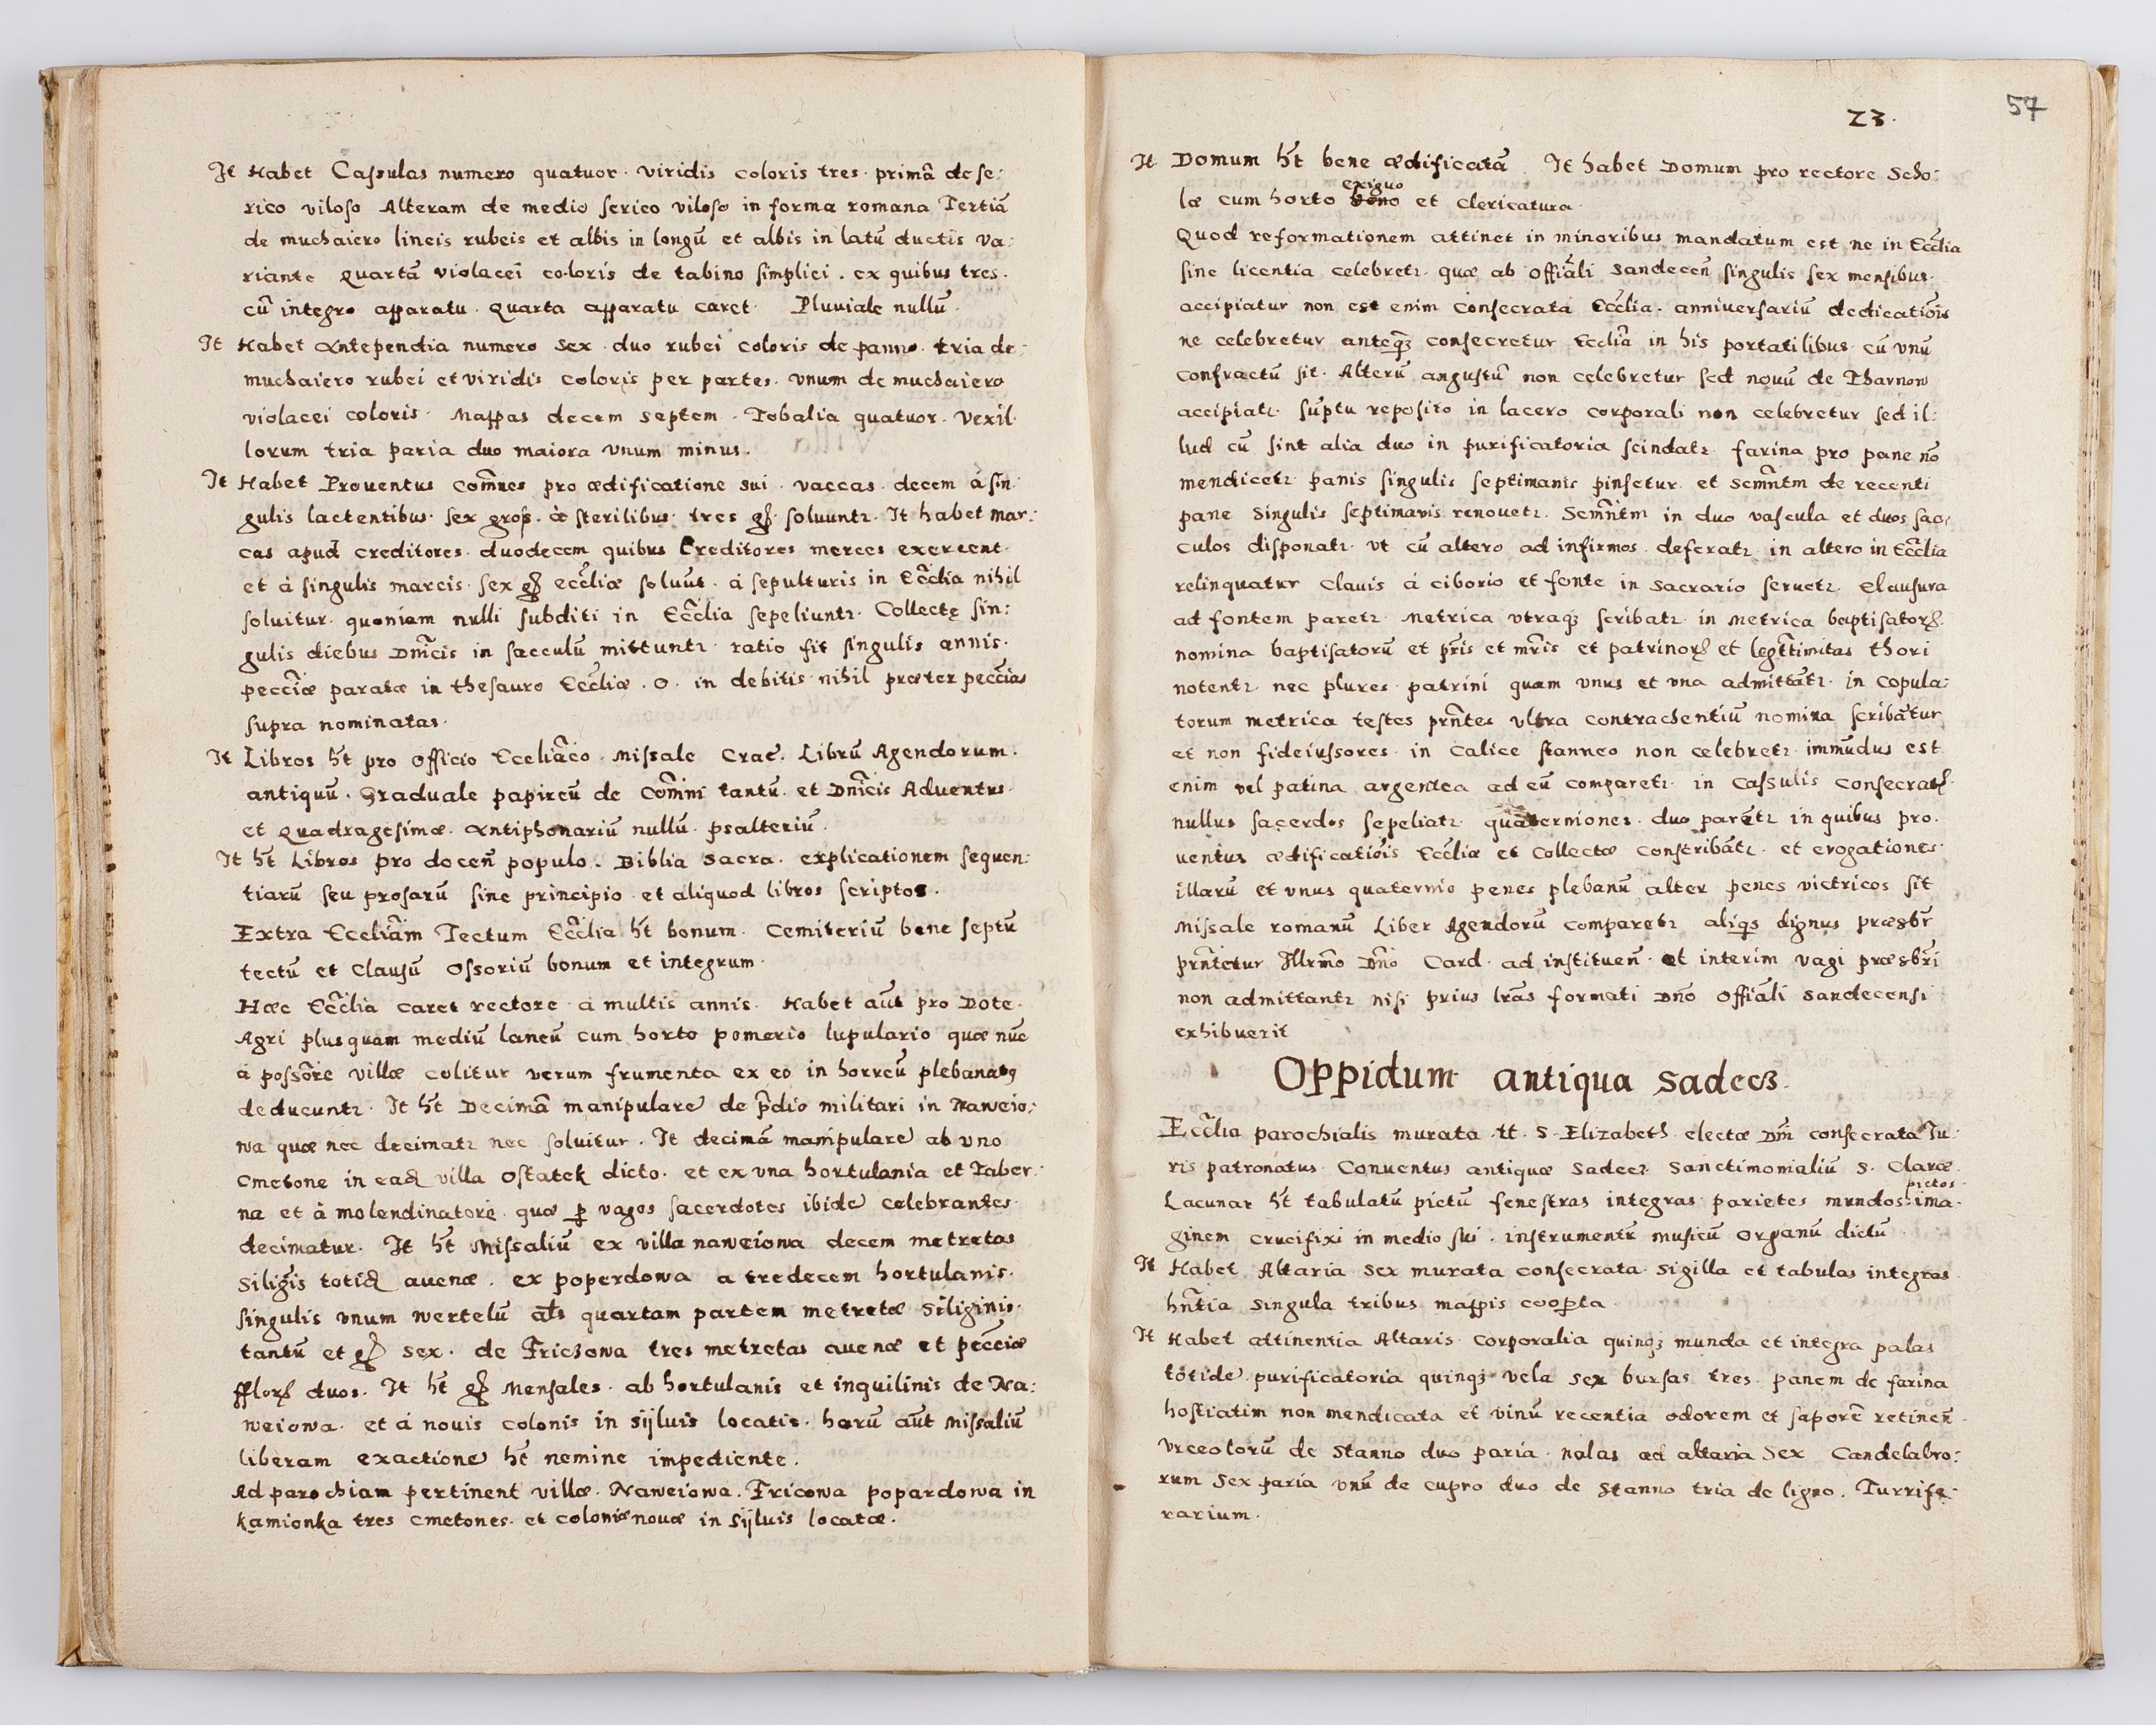 It Habet Casulas numero quatuor. viridis coloris tres. primā de se:
rico viloso Alteram de medio serico viloso in forma romana Tertiā
de muchaiero lineis rubeis et albis in longū et albis in latū ductis va:
riante Quartā violacei coloris de tabino simplici. ex quibus tres.
cū integro apparatu. Quarta apparatu caret. Pluviale nullū.
It Habet Antependia numero sex. duo rubei coloris de panno. tria de:
muchaiero rubei et viridis coloris per partes. vnum de muchaiero
violacei coloris. Mappas decem septem. Tobalia quatuor. Vexil:
lorum tria paria duo maiora vnum minus.
It Habet Prouentus com̄nes pro ædificatione sui. vaccas. decem à sin:
gulis lactentibus. sex gross. à sterilibus. tres gr. soluuntr. It habet mar:
cas apud creditores. duodecem quibus Creditores merces exercent.
et à singulis marcis. sex gr eccliæ soluūt. à sepulturis in Ecclia nihil
soluitur. quoniam nulli subditi in Ecclia sepeliuntr. Collectę sin:
gulis diebus Dnīcis in sacculū mittuntr. ratio fit singulis annis.
pecciæ paratæ in thesauro Eccliæ. o. in debitis nihil præter peccias
supra nominatas.
It Libros ht̄ pro Officio Eccliāco. Missale Crac. Librū Agendorum.
antiquū. Graduale papireū de Com̄ni tantū. et Dnīcis Aduentus.
et Quadragesimæ. Antiphonariū nullū. psalteriū.
It ht̄ Libros pro docen̄ populo. Biblia Sacra. explicationem sequen:
tiarū seu prosarū sine principio et aliquod libros scriptos.
Extra Eccliām Tectum Ecclia ht̄ bonum. Cemiteriū bene septū
tectū et Clausū Ossoriū bonum et integrum.
Hæc Ecclia caret rectore à multis annis. Habet aūt pro Dote.
Agri plusquam mediū laneū cum horto pomerio lupulario quæ nūc
à possōre villæ colitur verum frumenta ex eo in horreū plebanatq
deducuntr. It ht̄ Decimā manipulare de p̄dio militari in Naweio:
wa quæ nec decimatr nec soluitur. It decimā manipulare ab vno
Cmetone in ead villa Ostatek dicto. et ex vna hortulania et Taber:
na et à molendinatore quæ p vagos sacerdotes ibide celebrantes
decimatur. It ht̄ Missaliū ex villa naweiowa decem metretas
Siliginis totid auenæ. ex poperdowa a tredecem hortulanis.
singulis vnum wertelū als quartam partem metretæ Siliginis.
tantū et gr sex. de Friczowa tres metretas auenæ et pecciæ
fflor duos. It ht̄ gr Mensales. ab hortulanis et inquilinis de Na:
weiowa. et à nouis colonis in sijluis locatis. harū aūt Missaliū
liberam exactione ht̄ nemine impediente.
Ad parochiam pertinent villæ. Naweiowa. Fricowa popardowa in
kamionka tres cmetones. et coloniæ nouæ in Sijluis locatæ.
23.
57
It Domum ht̄ bene ædificatā. It habet Domum pro rectore Scho:
læ cum horto exiguo et clericatura.
Quod reformationem attinet in minoribus mandatum est ne in Ecclia
sine licentia celebretr. quæ ab Offiāli Sandecen̄ singulis sex mensibus.
accipiatur non est enim Consecrata Ecclia. anniuersariū dedicatiōis
ne celebretur anteq consecretur Ecclia in his portatilibus cū vnū
confractū sit. Alterū angustū non celebretur sed nouū de Tharnow
accipiatr. sūptu reposito in lacero corporali non celebretur sed il:
lud cū sint alia duo in purificatoria scindatr. farina pro pane nō
mendicetr panis singulis septimanis pinsetur. et Scm̄ntm de recenti
pane Singulis septimanis renouetr. Scm̄ntm in duo vascula et duos sac:
culos disponatr. vt cū altero ad infirmos. deferatr in altero in Ecclia
relinquatur Clauis à ciborio et fonte in Sacrario seruetr. Clausura
ad fontem paretr. Metrica vtraq scribatr. in Metrica baptisator.
nomina baptisatorū et pr̄is et mr̄is et patrinor et legittimitas thori
notentr. nec plures patrini quam vnus et vna admittātr. in Copula:
torum metrica testes prn̄tes vltra contrachentiū nomina scribātur
et non fideiussores. in Calice stanneo non celebretr. immūdus est
enim vel patina argentea ad eū comparetr. in Casulis Consecrat.
nullus sacerdos sepeliatr. quaterniones. duo parētr in quibus pro:
uentus ædificatiōis Eccliæ et Collectæ conscribātr. et erogationes.
illarū et vnus quaternio penes plebanū alter penes victricos sit
Missale romanū Liber Agendorū comparetr aliqs dignus præsbr̄
prn̄tetur Illrm̄o Dn̄o Card. ad instituen̄. et interim vagi præsbr̄i
non admittantr nisi prius lrās formati Dnō Offiāli Sandecensi
exhibuerit
Oppidum antiqua Sadecz.
Ecclia parochialis murata tt. S. Elizabeth. electæ Dnī consecrata Iu:
ris patronatus Conuentus antiquæ Sadecz Sanctimonialiū S. Claræ.
Lacunar ht̄ tabulatū pictū fenestras integras parietes mundos pictos. ima:
ginem Crucifixi in medio sui. instrumentū musicū Organū dictū.
It Habet Altaria sex murata consecrata sigilla et tabulas integras
hn̄tia singula tribus mappis coopta.
It Habet attinentia Altaris. Corporalia quinq munda et integra palas
totide purificatoria quinq vela sex bursas tres. panem de farina
hostiatim non mendicata et vinū recentia odorem et saporē retinen̄.
Vrceolorū de Stanno duo paria. nolas ad altaria Sex Candelabro:
rum Sex paria vnū de cupro duo de Stanno tria de ligno. Turrife:
rarium.